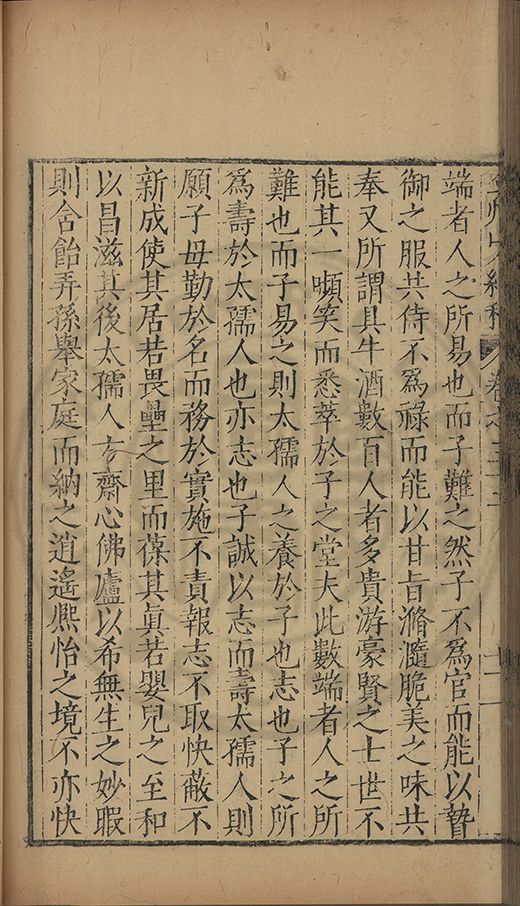 端者人之所易也而子難之然子不為官而能以贄
御之服共侍不為祿而能以甘旨滫瀡脆美之味共
奉又所謂具牛酒數百人者多貴游豪賢之士世不
能其一嚬笑而悉萃於子之堂夫此數端者人之所
難也而子易之則太孺人之養於子也志也子之所
為壽於太孺人也亦志也子誠以志而壽太孺人則
願子毋勤於名而務於實施不責報志不取快蔽不
新成使其居若畏壘之里而葆其眞若嬰兒之至和
以昌滋其後太孺人方齋心佛廬以希無生之妙暇
則含飴弄孫舉家庭而納之逍遙熈怡之境不亦快